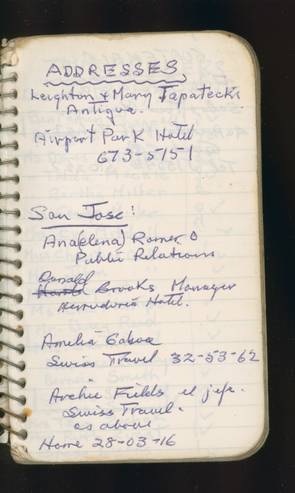 ADDRESSES
Leighton & Mary Tapateck's
Antigua.
Airport Park Hotel
673-5151
San Jose:
Ana(elena) Romero
Public Relations
Ronald
Brooks Manager
Herradura Hotel.
Amelia
Swiss Travel 32-53-62
Archie Fields el jefe.
Swiss Travel.
as above
Home 28-03-16